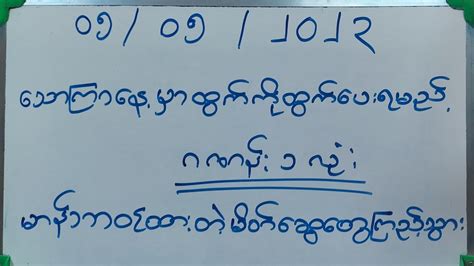 ၀၅ / ၀၅ / ၂၀၂၃
သောကြာနေ့မှာထွက်ကိုထွက်ပေးရမည့်
ဂဏန်း ၁ လုံး
မာန်ဘာဝင်ထားတဲ့မိတ်ဆွေတွေကြည့်သွား